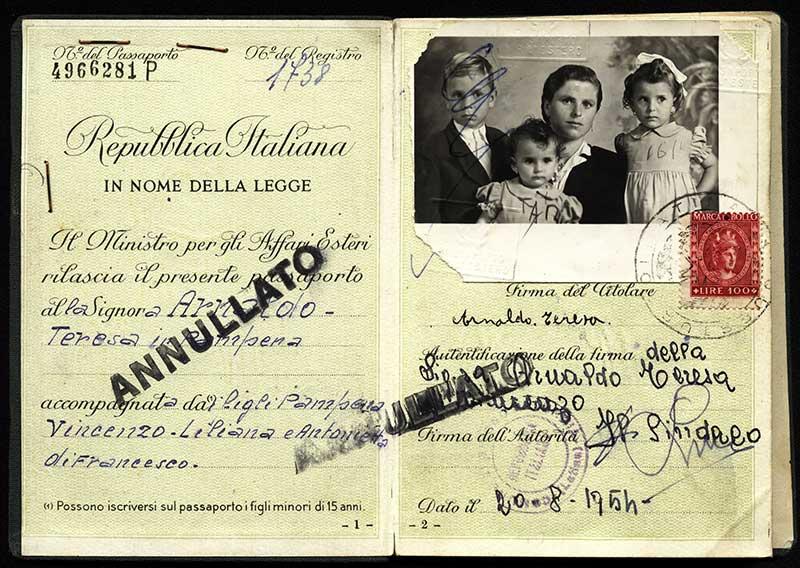 Nº del Passaporto
4966281 P
Nº del Registro
1738
Repubblica Italiana
IN NOME DELLA LEGGE
Il Ministro per gli Affari Esteri
rilascia il presente passaporto
alla Signora Arnaldo -
Teresa in Pampena
accompagnata dai figli Pampena
Vincenzo - Liliana e Antonietta
di Francesco.
ANNULLATO
(1) Possono iscriversi sul passaporto i figli minori di 15 anni.
- 1 -
MARCA DA BOLLO
LIRE 100
Firma del Titolare
Arnaldo Teresa
Autentificazione della firma della
Arnaldo Teresa
ANNULLATO
Firma dell'Autorità Il Sindaco
Dato il 20-8-1954-
- 2 -